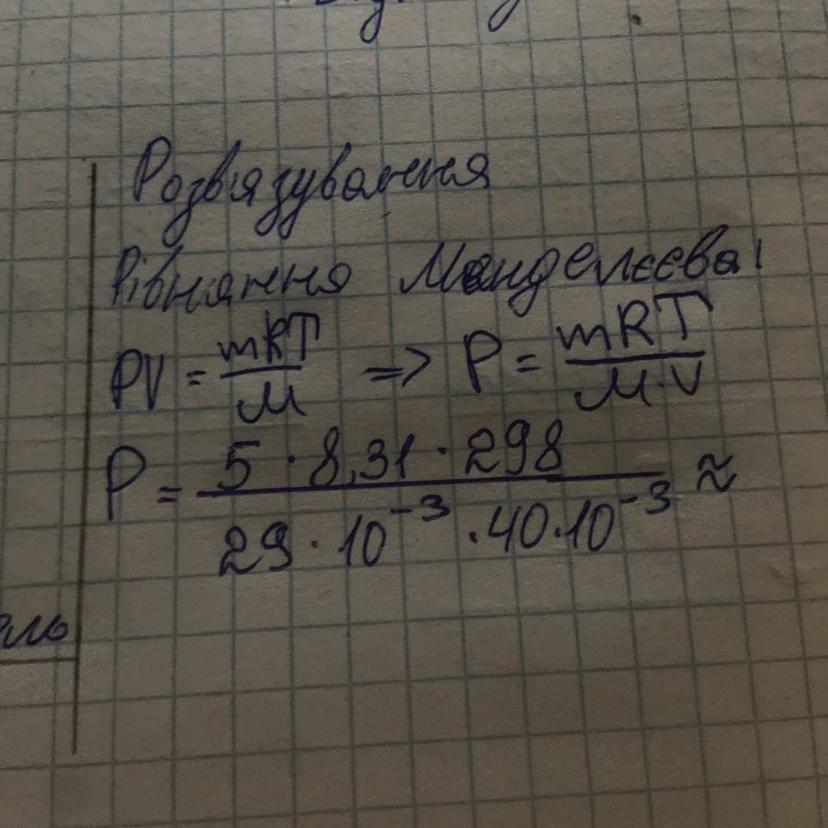 Розвязування
Рівняння Менделєєва!
PV = mRT/M => P = mRT/M·V
P = 5 · 8,31 · 298 / 29 · 10⁻³ · 40 · 10⁻³ ≈